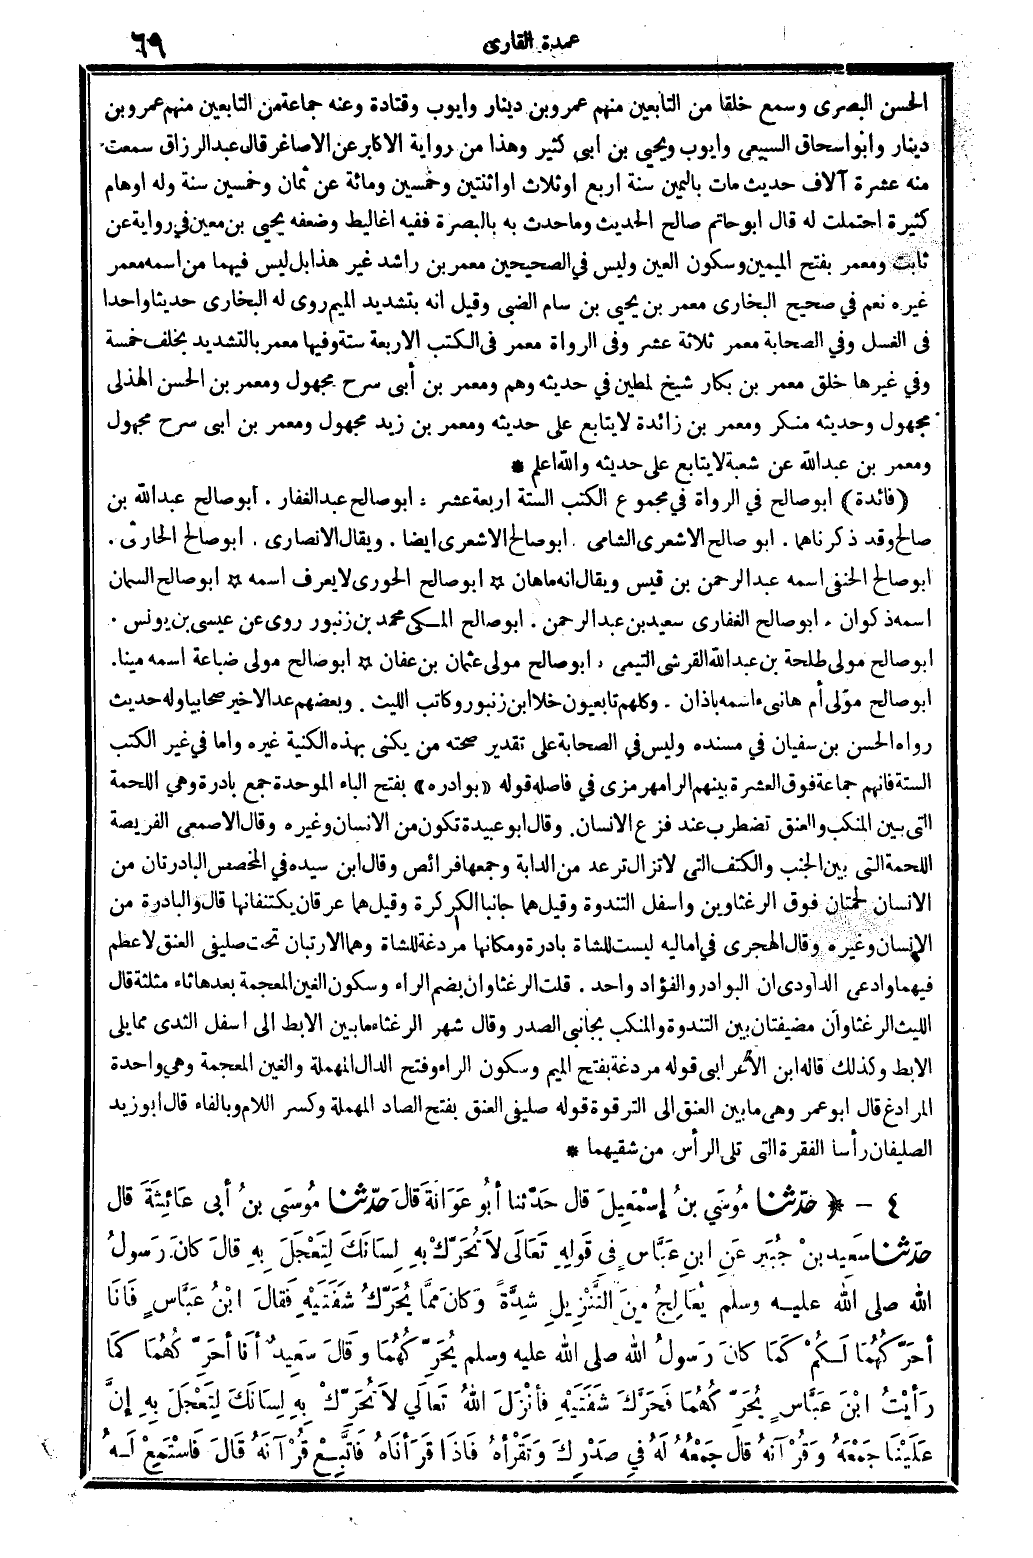 عمدة القارى
٦٩
الحسن البصرى وسمع خلقا من التابعين منهم عمرو بن دينار وايوب وقتادة وعنه جماعة من التابعين منهم عمرو بن
دينار وابو اسحاق السبيعى وايوب ويحيى بن ابى كثير وهذا من رواية الاكابر عن الاصاغر قال عبد الرزاق سمعت
منه عشرة آلاف حديث مات باليمن سنة اربع او ثلاث او اثنتين وخمسين ومائة عن ثمان وخمسين سنة وله اوهام
كثيرة احتملت له قال ابو حاتم صالح الحديث وما حدث به بالبصرة ففيه اغاليط وضعفه يحيى بن معين في رواية عن
ثابت ومعمر بفتح الميمين وسكون العين وليس في الصحيحين معمر بن راشد غير هذا بل ليس فيهما من اسمه معمر
غيره نعم في صحيح البخارى معمر بن يحيى بن سام الضبى وقيل انه بتشديد الميم روى له البخارى حديثا واحدا
فى الغسل وفي الصحابة معمر ثلاثة عشر وفى الرواة معمر فى الكتب الاربعة ستة وفيها معمر بالتشديد بخلف خمسة
وفي غيرها خلق معمر بن بكار شيخ لمطين في حديثه وهم ومعمر بن أبى سرح مجهول ومعمر بن الحسن الهذلى
مجهول وحديثه منكر ومعمر بن زائدة لا يتابع على حديثه ومعمر بن زيد مجهول ومعمر بن ابى سرح مجهول
ومعمر بن عبد الله عن شعبة لا يتابع على حديثه والله اعلم *
(فائدة) ابو صالح في الرواة في مجموع الكتب الستة اربعة عشر . ابو صالح عبد الغفار . ابو صالح عبد الله بن
صالح وقد ذكرناهما . ابو صالح الاشعرى الشامى . ابو صالح الاشعرى ايضا . ويقال الانصارى . ابو صالح الحارثى .
ابو صالح الحنفى اسمه عبد الرحمن بن قيس ويقال انه ماهان * ابو صالح الخورى لا يعرف اسمه * ابو صالح السمان
اسمه ذكوان . ابو صالح الغفارى سعيد بن عبد الرحمن . ابو صالح المكى محمد بن زنبور روى عن عيسى بن يونس .
ابو صالح مولى طلحة بن عبد الله القرشى التيمى . ابو صالح مولى عثمان بن عفان * ابو صالح مولى ضباعة اسمه مينا.
ابو صالح مولى أم هانىء اسمه باذان . وكلهم تابعيون خلا ابن زنبور وكاتب الليث . وبعضهم عد الاخير صحابيا وله حديث
رواه الحسن بن سفيان في مسنده وليس في الصحابة على تقدير صحته من يكنى بهذه الكنية غيره واما في غير الكتب
الستة فانهم جماعة فوق العشرة بينهم الرامهرمزى في فاصله قوله «بوادره» بفتح الباء الموحدة جمع بادرة وهي اللحمة
التى بين المنكب والعنق تضطرب عند فزع الانسان. وقال ابو عبيدة تكون من الانسان وغيره وقال الاصمعى الفريصة
اللحمة التى بين الجنب والكتف التى لا تزال ترعد من الدابة وجمعها فرائص وقال ابن سيده في المخصص البادرتان من
الانسان لحمتان فوق الرغثاوين واسفل التندوة وقيل هما جانبا الكركرة وقيل هما عرقان يكتنفانها قال والبادرة من
الانسان وغيره وقال الهجرى في اماليه ليست للشاة بادرة ومكانها مردغة للشاة وهما الارتبان تحت صليفى العنق لا عظم
فيهما وادعى الداودى ان البوادر والفؤاد واحد . قلت الرغثاوان بضم الراء وسكون الغين المعجمة بعدها ثاء مثلثة قال
الليث الرغثاوان مضيفتان بين التندوة والمنكب بجانبى الصدر وقال شهر الرغثاء ما بين الابط الى اسفل الثدى مما يلى
الابط وكذلك قاله ابن الأعرابى قوله مردغة بفتح الميم وسكون الراء وفتح الدال المهملة والغين المعجمة وهي واحدة
المرادغ قال ابو عمر وهى ما بين العنق الى الترقوة قوله صليفى العنق بفتح الصاد المهملة وكسر اللام وبالفاء قال ابو زيد
الصليفان رأسا الفقرة التى تلى الرأس من شقيهما *
٤ - ﴿ حَدَّثَنَا مُوسَي بنُ إِسْمعِيلَ قال حَدَّثنا أبُو عَوَانَةَ قالَ حَدَّثَنا مُوسَى بنُ أبى عَائِشَةَ قال
حَدَّثَنا سَعِيد بنْ جُبَير عَنِ ابنِ عَبَّاسٍ في قَولِهِ تَعَالَى لاَ تُحَرِّكْ بهِ لِسَانَكَ لِتَعْجَلَ بِهِ قالَ كانَ رَسولُ
الله صلى الله عليه وسلم يُعَالِجُ مِنَ التَّنْزِيلِ شِدَّةً وَكانَ مِمَّا يُحَرِّكُ شَفَتَيْهِ فَقالَ ابْنُ عَبَّاسٍ فَانَا
أحَرِّكُهُمَا لَكُمْ كمَا كانَ رَسولُ الله صلى الله عليه وسلم يُحَرِّكُهُمَا وَقالَ سَعِيدٌ أنَا أحَرِّكُهُمَا كمَا
رَأيْتُ ابْنَ عَبَّاسٍ يُحَرِّكُهُمَا فَحَرَّكَ شَفَتَيْهِ فأنْزَلَ اللهُ تَعَالَي لاَ تُحَرِّكْ بِهِ لِسَانَكَ لِتَعْجَلَ بِهِ إنَّ
عَلَيْنَا جَمْعَهُ وَقُرْآنَهُ قالَ جَمْعُهُ لَهُ في صَدْرِكَ وَتَقْرَأهُ فَاذَا قَرَأنَاهُ فَاتَّبِعْ قُرْآنَهُ قالَ فَاسْتَمِعْ لَهُ